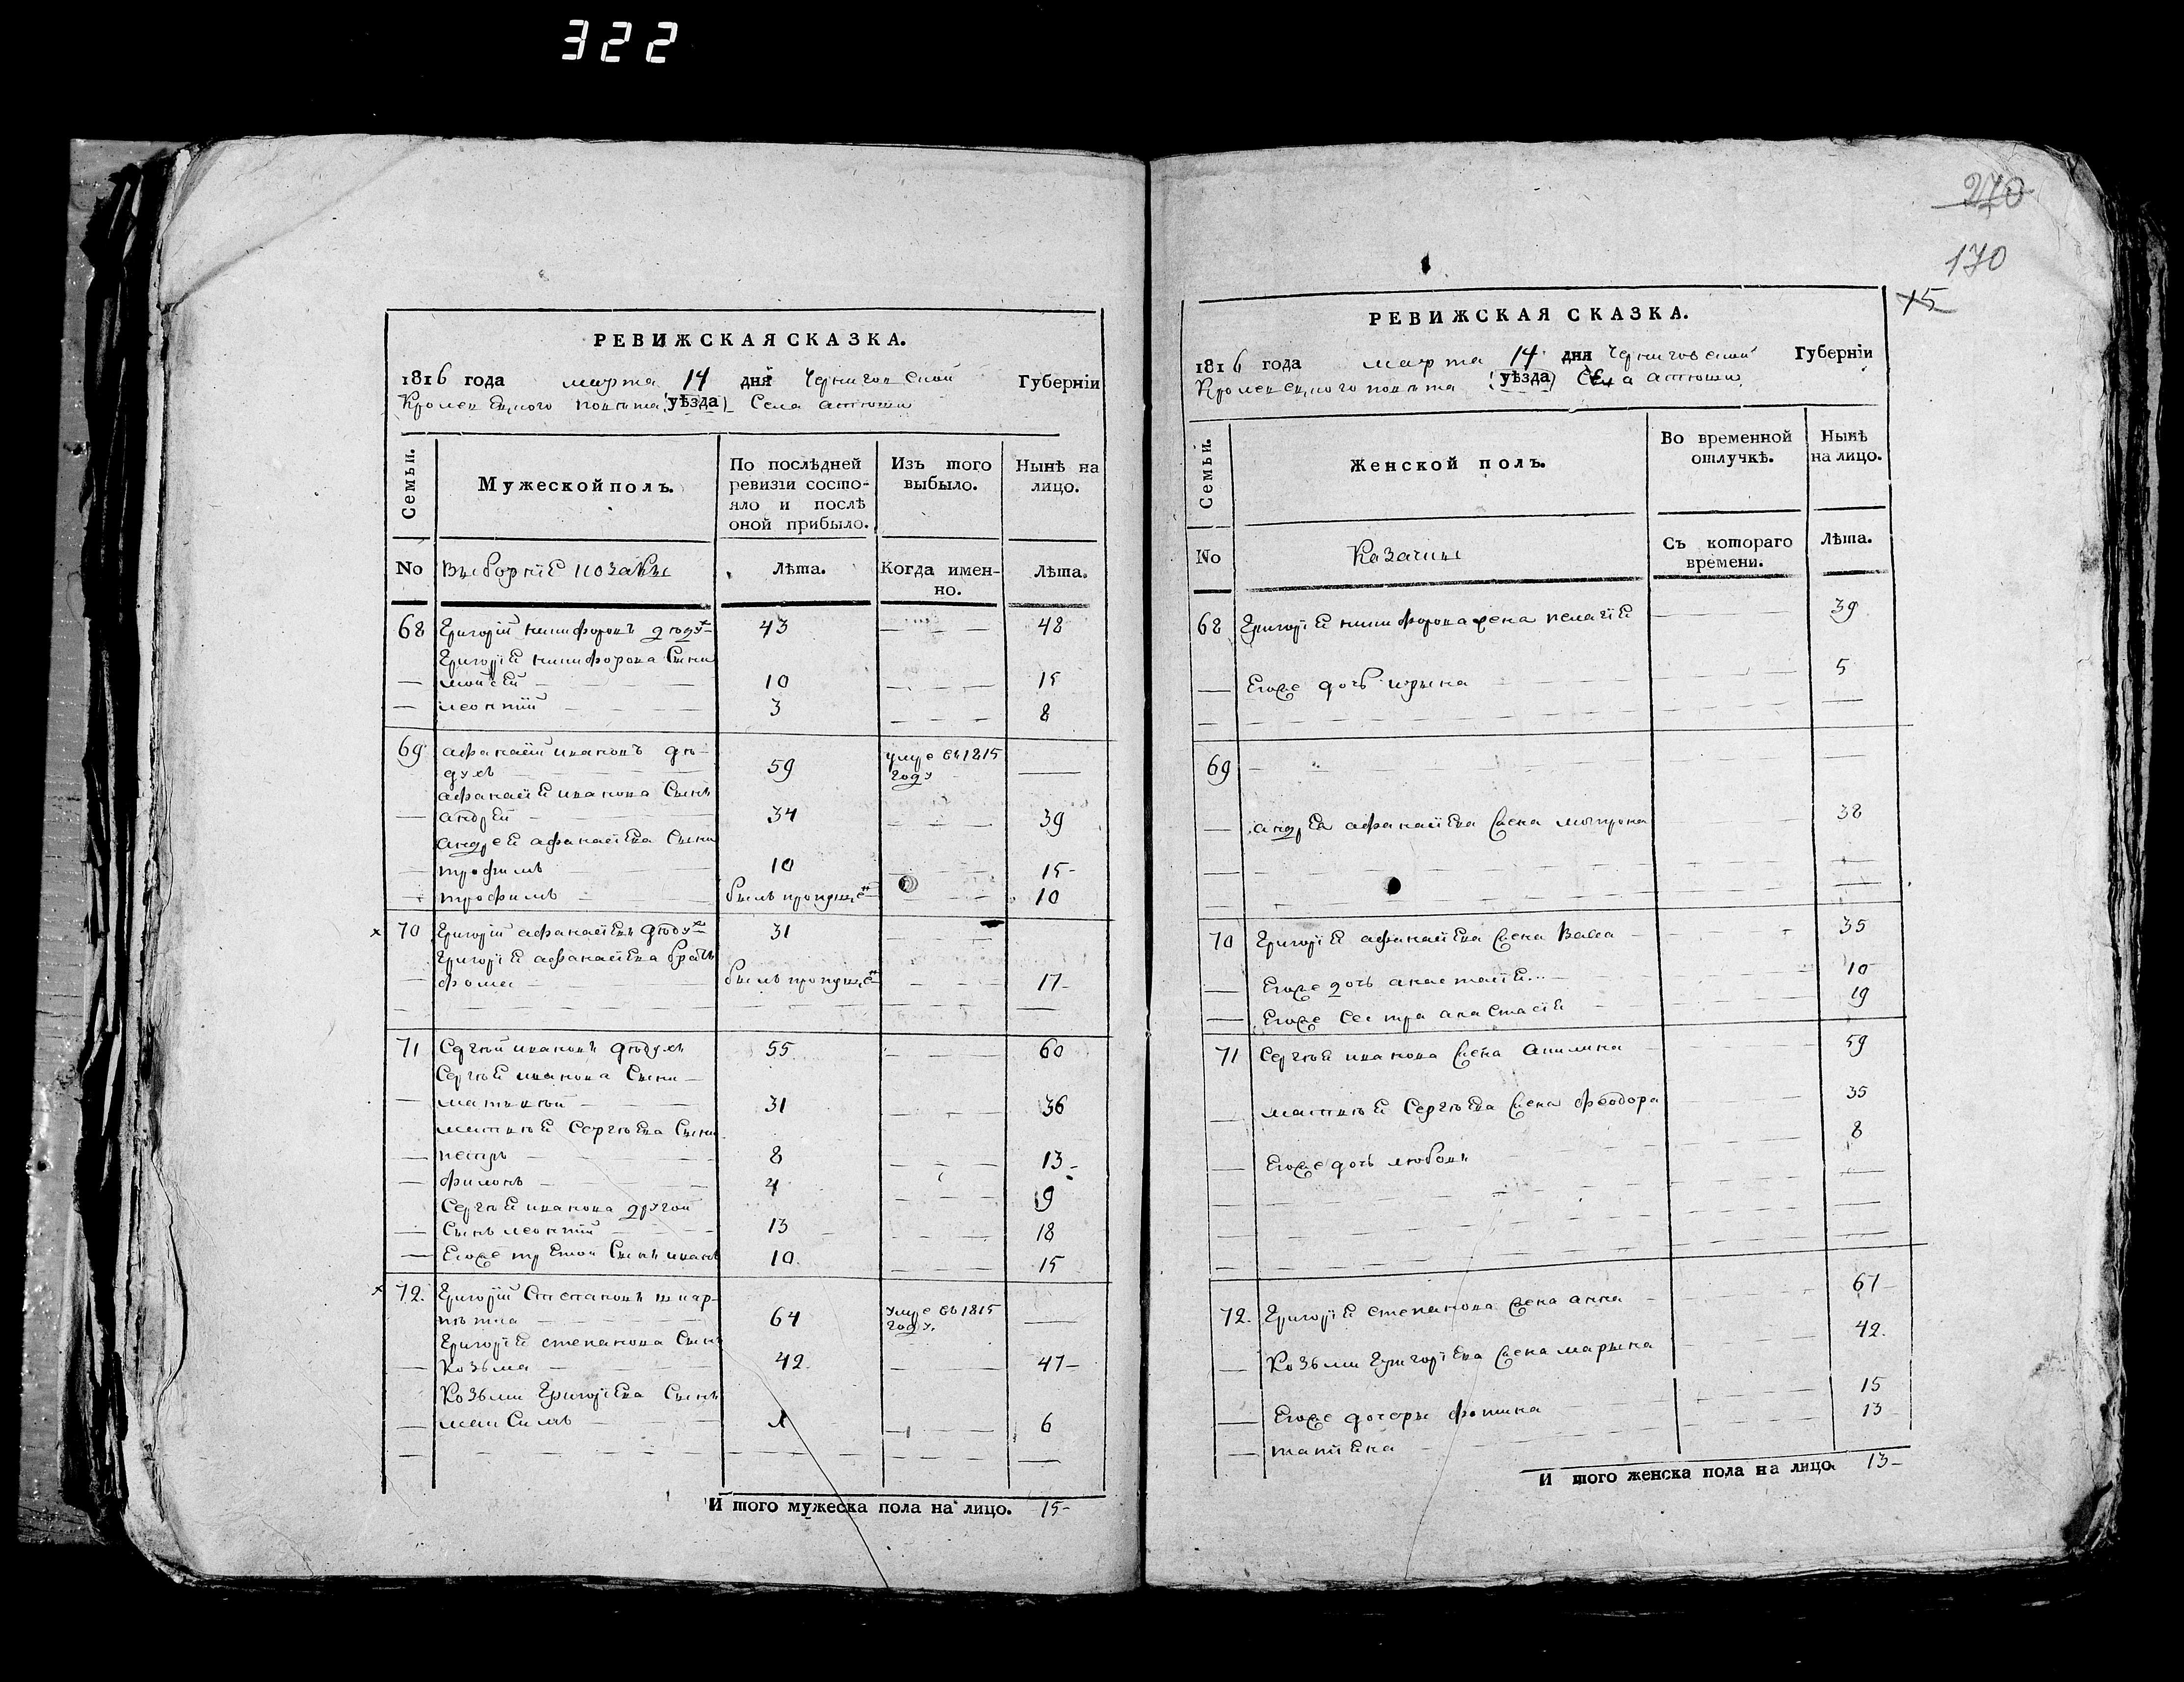 322
РЕВИЖСКАЯ СКАЗКА.
1816 года марта 14 дня Черниговской Губернїи
Кролевецкого повѣта (уѣзда) Села атюши
Семьи.
Мужеской полъ.
По послѣдней ревизїи состояло и послѣ оной прибыло.
Изъ того выбыло.
Нынѣ на лицо.
No Выборнїе козаки Лѣта. Когда именно. Лѣта.
68 Григорїй никифоровъ дюдух 43 — — — 48
Григорїя никифорова Сыни
— мойсей 10 — — — 15
— леонтїй 3 — — — 8
69 афанасїй ивановъ дю-
духъ 59 умре въ 1815 году —
афанасїя иванова Сынъ
— андрей 34 — — — 39
андрея афанасїева Сыни
— трофимъ 10 — — — 15
— трофимъ былъ пропущен — — 10
70 Григорїй афанасїевъ дюдух 31 — — —
Григорїя афанасїева братъ
— фома былъ пропущен — — — 17
71 Сергѣй ивановъ дюдухъ 55 — — — 60
Сергѣя иванова Сыни
— матвѣй 31 — — — 36
матвѣя Сергѣева Сыни
— петръ 8 — — — 13
— филонъ 4 — — — 9
Сергѣя иванова другой
— Сынъ леонтїй 13 — — — 18
— Егоже третой Сынъ иванъ 10 — — — 15
72. Григорїй Степановъ шкар-
64 умре въ 1815 году. —
Григорїя степанова Сынъ
— Козьма 42 — — 47
Козьми Григорїева Сынъ
— максимъ 1 — — 6
И того мужеска пола на лицо. 15
270
170
15
РЕВИЖСКАЯ СКАЗКА.
1816 года марта 14 дня Черниговской Губернїи
Кролевецкого повѣта (уѣзда) Села атюши
Семьи.
Женской полъ.
Во временной отлучкѣ.
Нынѣ на лицо.
No Козачки Съ котораго времени. Лѣта.
68 Григорїя никифорова жена пелагїя — — — 39
— Егоже дочь ирына — — — 5
69 — — — —
— андрея афанасїева жена мотрона — — — 38
70 Григорїя афанасїева жена Васса — — — 35
— Егоже дочь анастасїя — — — 10
— Егоже Сестра анастасїя 19
71 Сергѣя иванова жена Акилина — — — 59
— матвѣя Сергѣева жена феодора — — — 35
— Егоже дочь любовь — — — 8
72. Григорїя степанова жена анна — — — 67
— Козьми Григорїева жена марына — — — 42.
— Егоже дочеры фотина — — — 15
— татїяна — — — 13
И того женска пола на лицо. 13